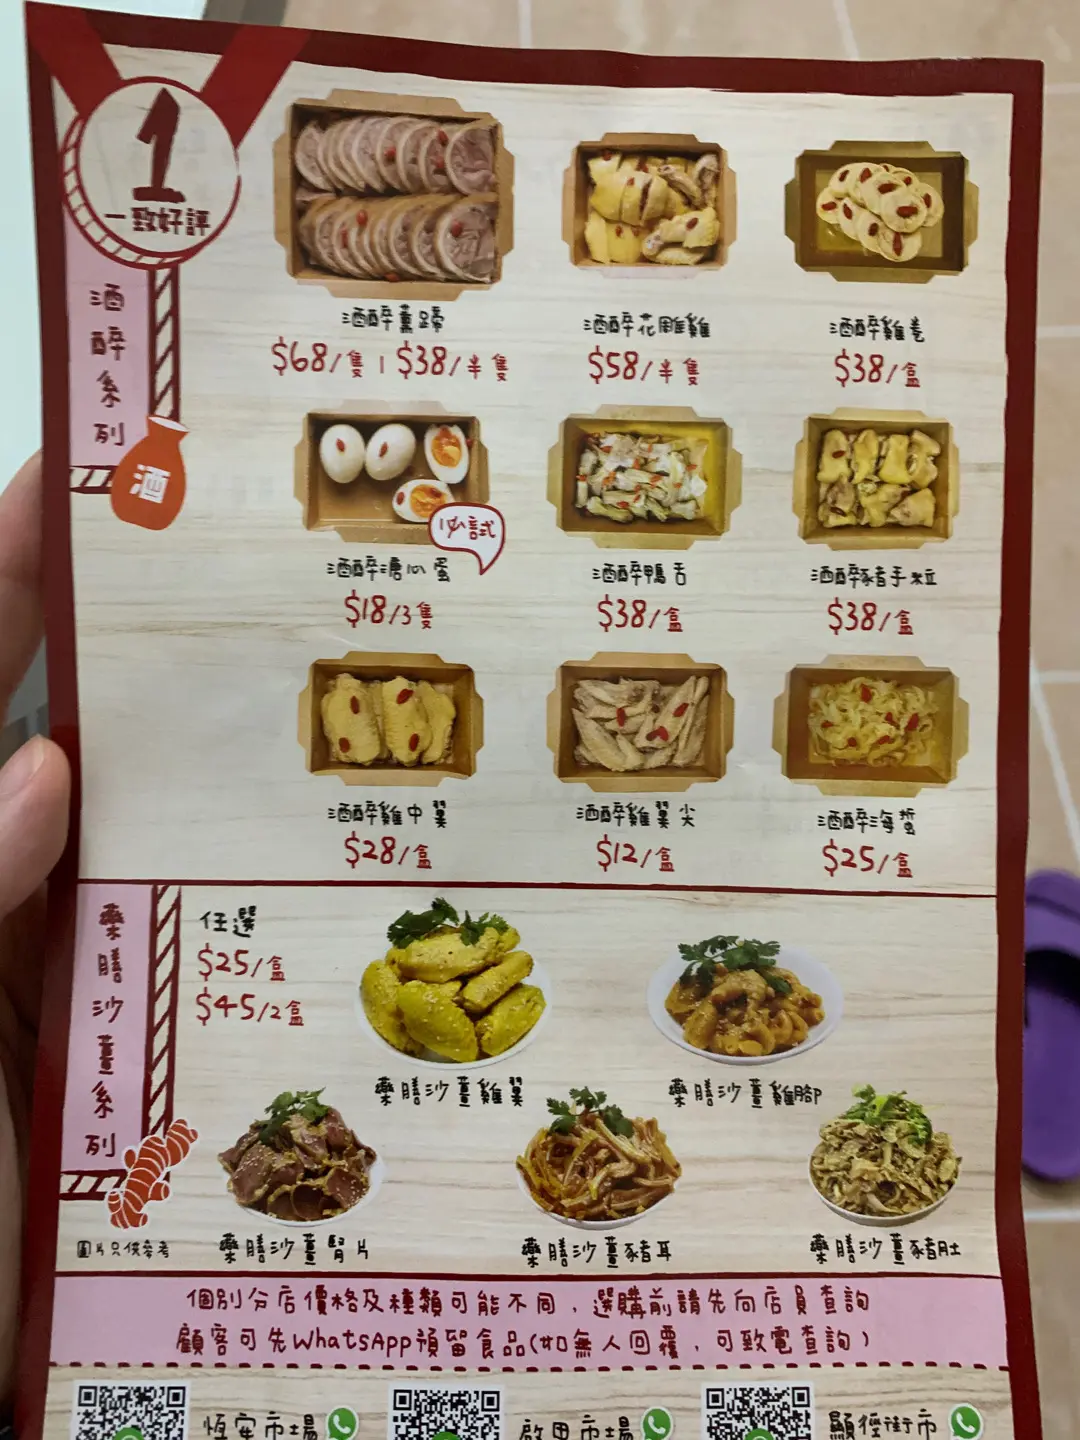 1
一致好評
酒醉系列
酒
酒醉薰蹄
$68/隻 | $38/半隻
酒醉花雕雞
$58/半隻
酒醉雞卷
$38/盒
必試
酒醉溏心蛋
$18/3隻
酒醉鴨舌
$38/盒
酒醉豬手粒
$38/盒
酒醉雞中翼
$28/盒
酒醉雞翼尖
$12/盒
酒醉海蜇
$25/盒
藥膳沙薑系列
任選
$25/盒
$45/2盒
藥膳沙薑雞翼
藥膳沙薑雞腳
藥膳沙薑腎片
藥膳沙薑豬耳
藥膳沙薑豬肚
圖片只供參考
個別分店價格及種類可能不同，選購前請先向店員查詢
顧客可先WhatsApp預留食品(如無人回覆，可致電查詢)
恆安市場
啟田市場
顯徑街市